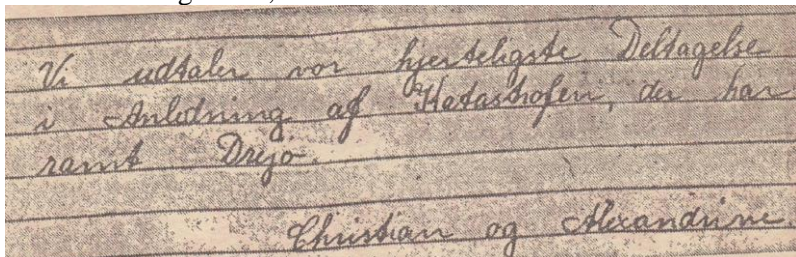 Vi udtaler vor hjerteligste Deltagelse
i Anledning af Katastrofen, der har
ramt Drejø.
Christian og Alexandrine.